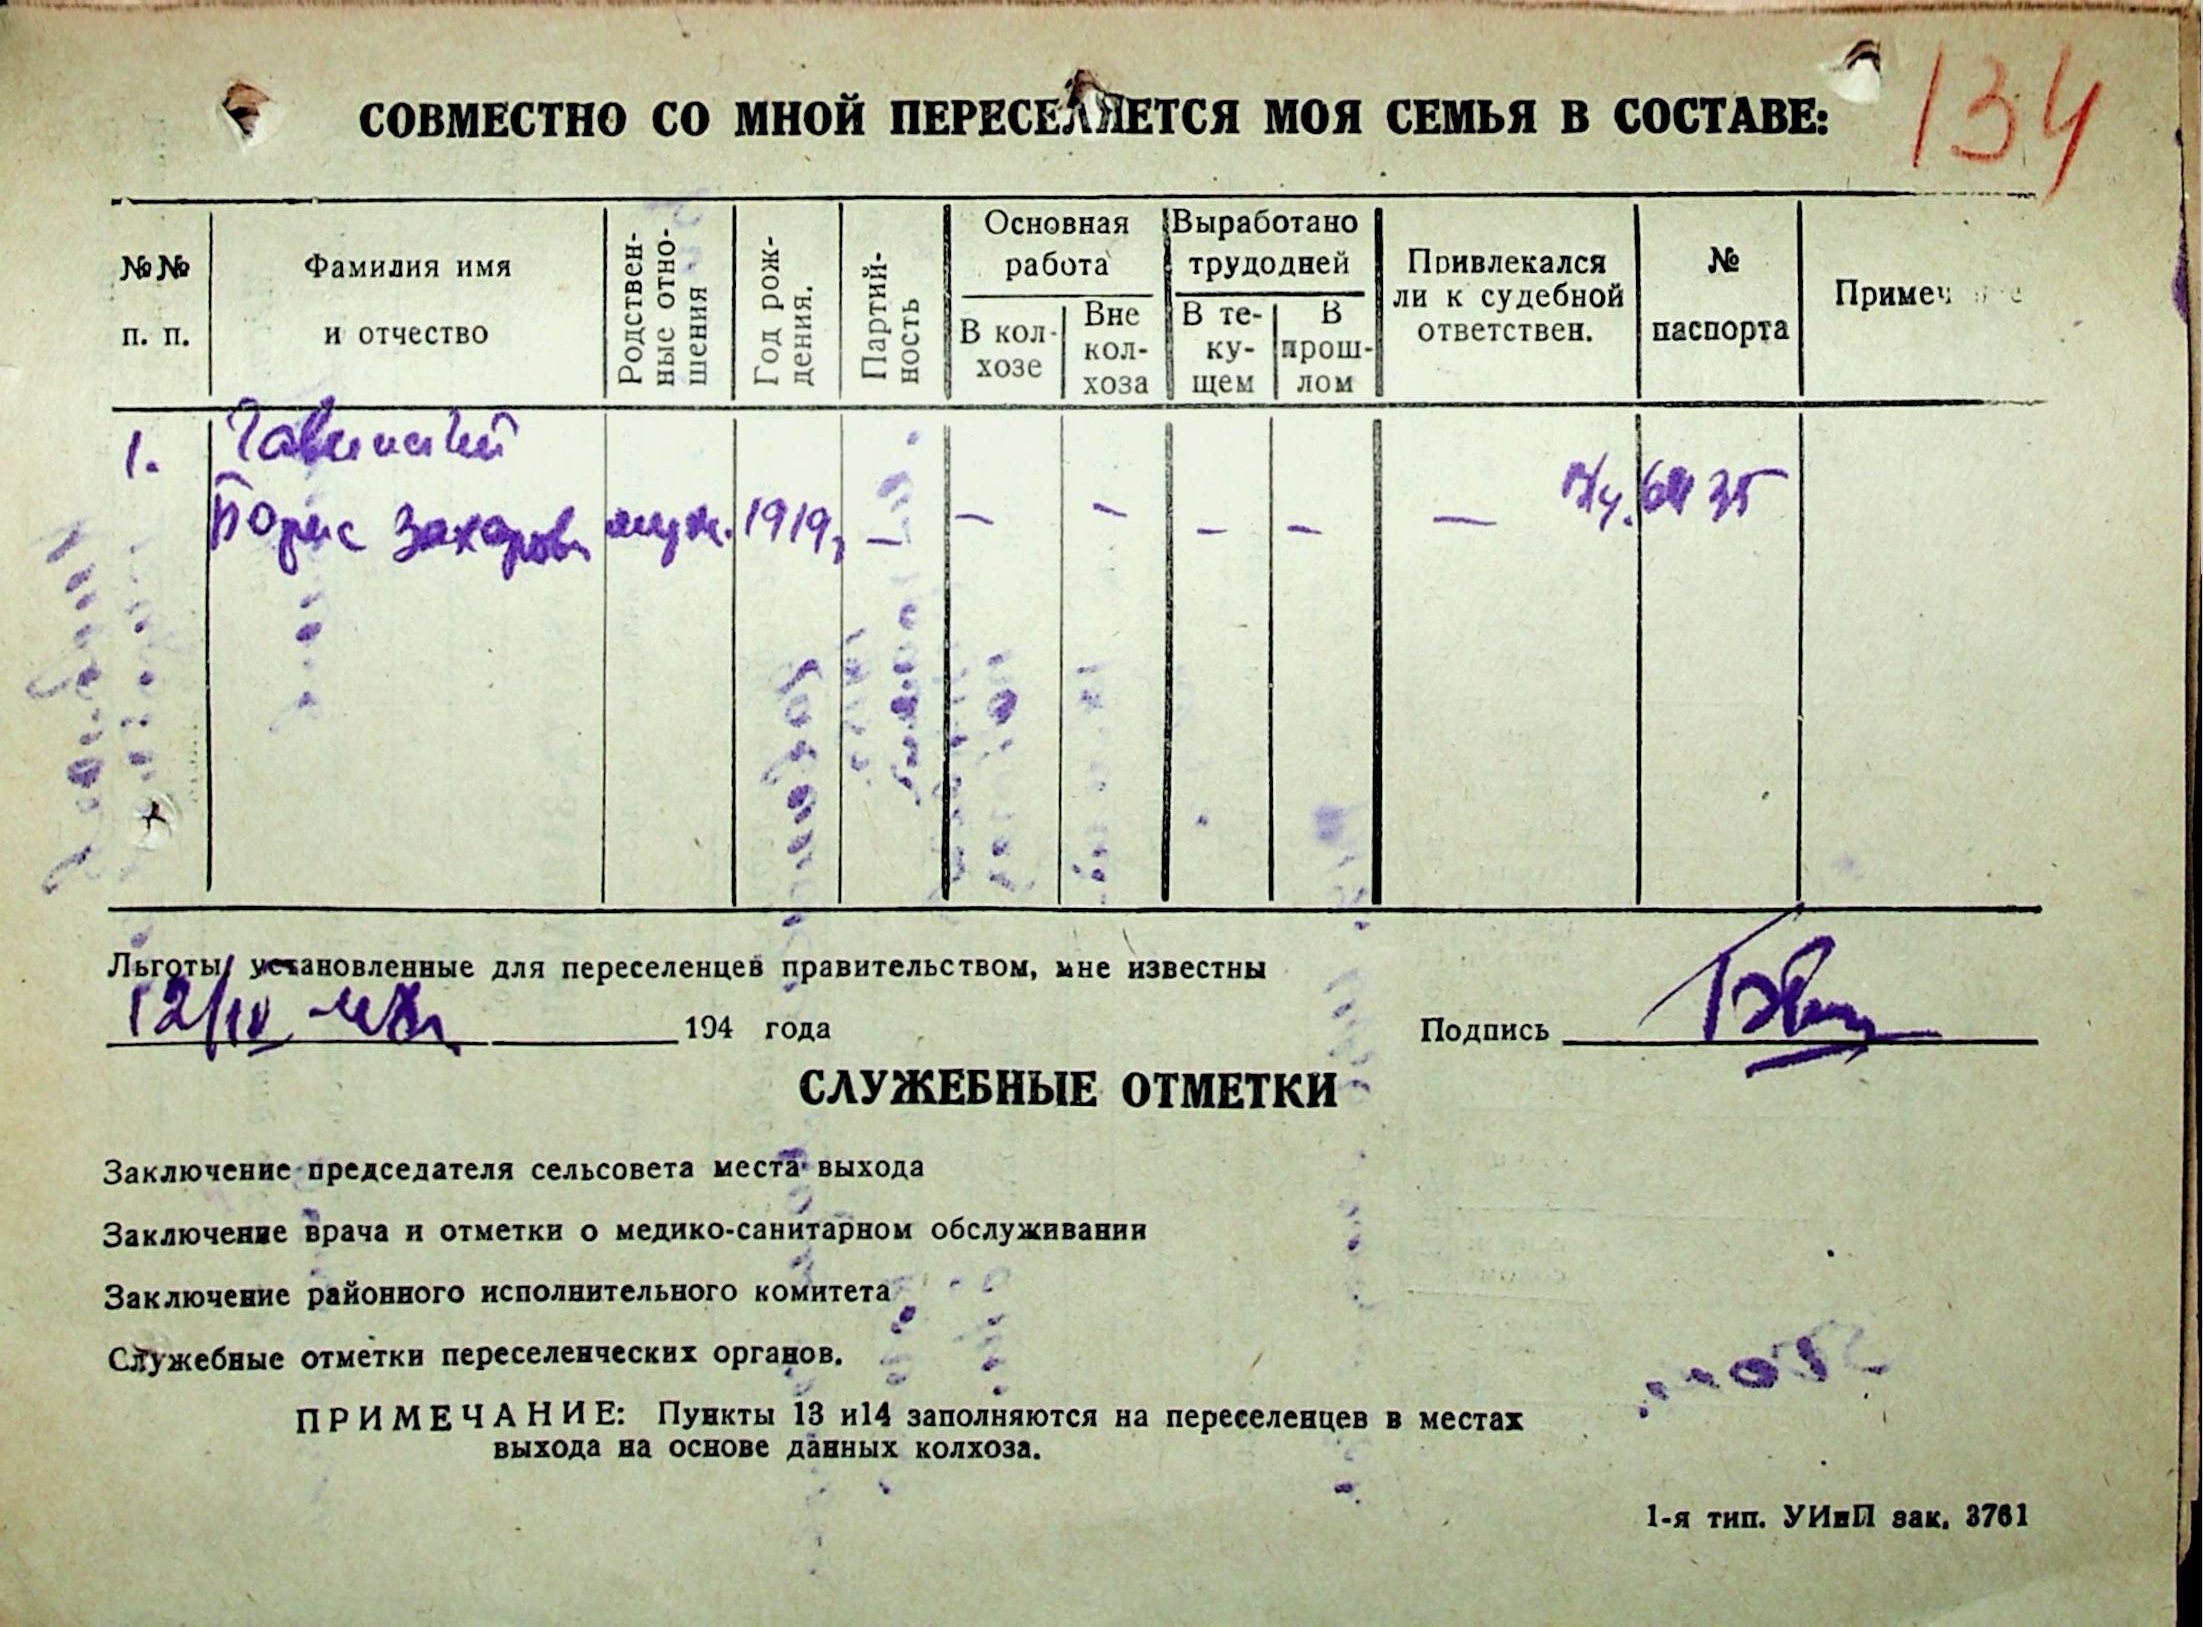 134
СОВМЕСТНО СО МНОЙ ПЕРЕСЕЛЯЕТСЯ МОЯ СЕМЬЯ В СОСТАВЕ:
№№ п. п.
Фамилия имя и отчество
Родствен-ные отно-шения
Год рож-дения.
Партий-ность
Основная работа
В кол-хозе
Вне кол-хоза
Выработано трудодней
В те-ку-щем
В прош-лом
Привлекался ли к судебной ответствен.
№ паспорта
1.
Борис Захаров муж. 1919 — — — — — —
Льготы, установленные для переселенцев правительством, мне известны
194 года
Подпись
СЛУЖЕБНЫЕ ОТМЕТКИ
Заключение председателя сельсовета места выхода
Заключение врача и отметки о медико-санитарном обслуживании
Заключение районного исполнительного комитета
Служебные отметки переселенческих органов.
ПРИМЕЧАНИЕ: Пункты 13 и14 заполняются на переселенцев в местах
выхода на основе данных колхоза.
1-я тип. УИиП зак. 3761